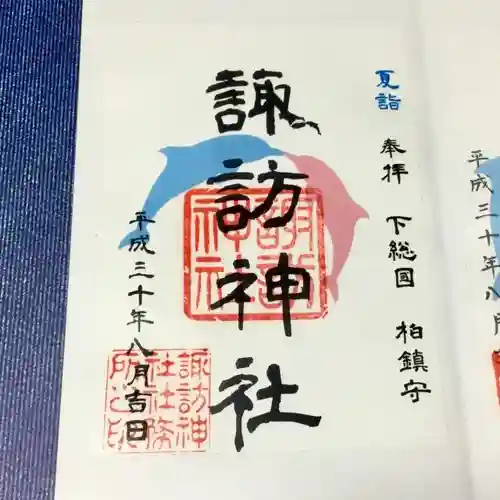 夏詣
奉拝 下総国 柏鎮守
諏訪神社
諏訪神社
平成三十年八月吉日
諏訪神
社社務
所之印
平成三十年八月